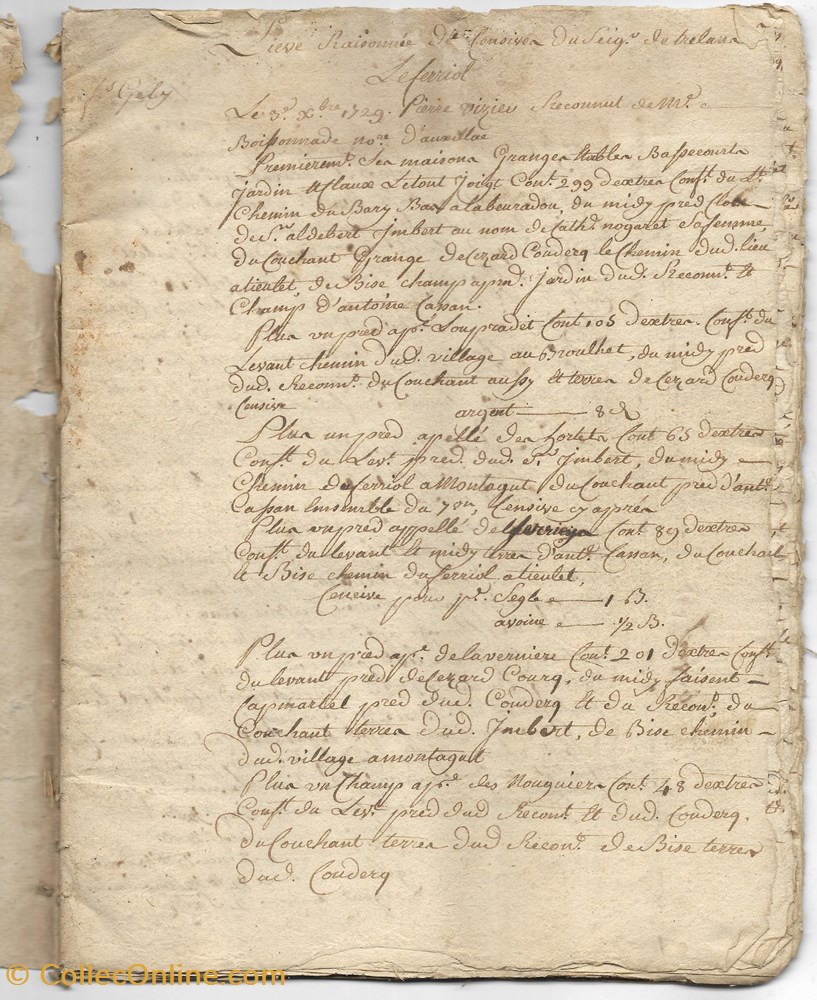 Lieve Raisonnée des Censives du Seigr de trelans
Leferriol
Gely
Le 3e xbre 1729. Pierre vizier Reconnut de Me
Boissonnade nore d'auxillac
Premieremt Ses maisons Granges Etables Bassecourts
Jardin Et claux Letout Joigt Cont 299 dextres Confte du Lt
Chemin du Bary Bas alabeuradou, du midy pred clos
de Sr aldebert Imbert au nom de Cathe nogaret Safemme,
du Couchant Grange de Cezard Couderq le Chemin dud. lieu
atieulet, de Bise champ Jardin dud. Reconnt Et
Champ d'antoine Cassan.
Plus un pred apé Loupradet Cont 105 dextres. Confte du
Levant chemin dud. village au Broulhet, du midy pred
dud. Reconnt du Couchant aussy Et terres de Cezard Couderq
Censive argent 8 d
Plus un pred apellé des hortets Cont 65 dextres
Confte du Levt pred dud. Sr Imbert, du midy
Chemin de ferriol a Montagut du Couchant pred d'ante
Cassan Ensemble du 7on, Censive cy aprés
Plus un pred appellé de Cont 89 dextres
Confte du levant Et midy terres d'ante Cassan, du Couchant
Et Bise chemin du ferriol atieulet,
Censive pour pt Segle 1 B.
avoine 1/2 B.
Plus un pred apé delaverniere Cont 201 dextres Confte
du levant pred de Cezard Courq, du midy faisent
Capmartel pred dud. Couderq Et du Recont du
Couchant terres dud. Imbert, de Bise chemin
dud. village amontagut
Plus un Champ apé des Nouguiers Cont 48 dextres
Confte du Levt pred dud Recont Et dud. Couderq.
du Couchant terres dud Recont de Bise terres
dud. Couderq
© CollecOnline.com